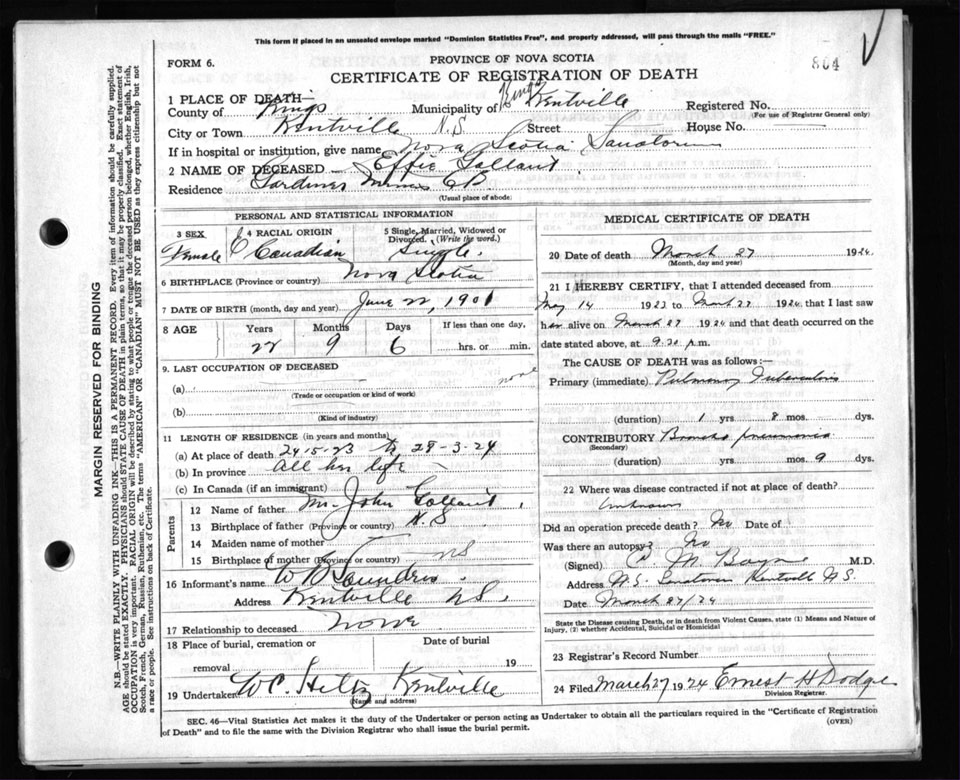 This form if placed in an unsealed envelope marked "Dominion Statistics Free", and properly addressed, will pass through the mails "FREE."
FORM 6.
PROVINCE OF NOVA SCOTIA
804
CERTIFICATE OF REGISTRATION OF DEATH
1 PLACE OF DEATH—
County of Kings Municipality of Kings Kentville Registered No.
(For use of Registrar General only)
City or Town Kentville N.S Street House No.
If in hospital or institution, give name Nova Scotia Sanatorium
2 NAME OF DECEASED Effie Gallant
Residence Gardiner Mines CB
(Usual place of abode)
PERSONAL AND STATISTICAL INFORMATION
3 SEX 4 RACIAL ORIGIN 5 Single, Married, Widowed or Divorced. (Write the word.)
Female Canadian Single.
6 BIRTHPLACE (Province or country) Nova Scotia
7 DATE OF BIRTH (month, day and year) June 22, 1901
8 AGE Years Months Days If less than one day,
22 9 6 hrs. or min.
9. LAST OCCUPATION OF DECEASED
(a) none
(Trade or occupation or kind of work)
(b)
(Kind of industry)
11 LENGTH OF RESIDENCE (in years and months)
(a) At place of death 24-5-23 to 28-3-24
(b) In province all her life
(c) In Canada (if an immigrant)
Parents
12 Name of father Mr. John Gallant
13 Birthplace of father (Province or country) N.S
14 Maiden name of mother
15 Birthplace of mother (Province or country) NS
16 Informant's name Saunders
Address Kentville N.S.
17 Relationship to deceased None
18 Place of burial, cremation or removal Date of burial 19
19 Undertaker W.C. Hiltz Kentville
(Name and address)
MEDICAL CERTIFICATE OF DEATH
20 Date of death March 27 1924.
(Month, day and year)
21 I HEREBY CERTIFY, that I attended deceased from
May 14 1923 to March 27 1924 that I last saw
her alive on March 27 1924 and that death occurred on the
date stated above, at 9.20 p.m.
The CAUSE OF DEATH was as follows:—
Primary (immediate) Pulmonary Tuberculosis
(duration) 1 yrs 8 mos. dys.
CONTRIBUTORY Broncho pneumonia
(Secondary)
(duration) yrs mos. 9 dys.
22 Where was disease contracted if not at place of death?
Unknown
Did an operation precede death? No Date of
Was there an autopsy? No
(Signed) M M.D.
Address N.S. Sanatorium Kentville N.S.
Date March 27/24
State the Disease causing Death, or in death from Violent Causes, state (1) Means and Nature of Injury, (2) whether Accidental, Suicidal or Homicidal
23 Registrar's Record Number
24 Filed March 27 1924 Ernest H Dodge
Division Registrar.
SEC. 46—Vital Statistics Act makes it the duty of the Undertaker or person acting as Undertaker to obtain all the particulars required in the "Certificate of Registration
of Death" and to file the same with the Division Registrar who shall issue the burial permit.
(OVER)
MARGIN RESERVED FOR BINDING
N.B.—WRITE PLAINLY WITH UNFADING INK—THIS IS A PERMANENT RECORD. Every item of information should be carefully supplied.
AGE should be stated EXACTLY. PHYSICIANS should STATE CAUSE OF DEATH in plain terms, so that it may be properly classified. Exact statement of
OCCUPATION is very important. RACIAL ORIGIN will be described by stating to what people or tongue the deceased person belonged, whether English, Irish,
Scotch, French, German, Russian, Ruthenian, etc. The terms "AMERICAN" or "CANADIAN" MUST NOT BE USED as they express citizenship but not
a race or people. See instructions on back of Certificate.